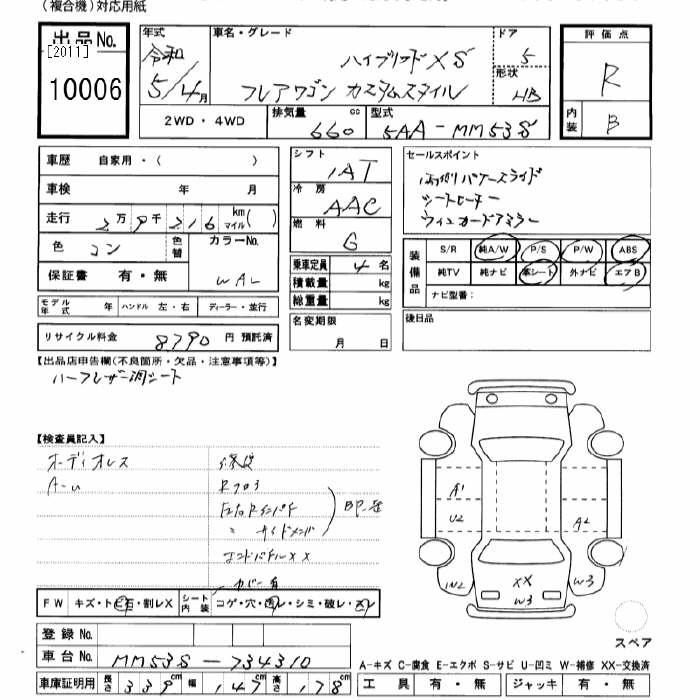 (複合機)対応用紙
出品No.
[2011]
10006
年式
令和
5/4月
車名・グレード
ハイブリッドXS
フレアワゴン カスタムスタイル
ドア
5
形状
HB
評価点
R
内装
B
2WD・4WD
排気量
660 cc
型式
5AA-MM53S
車歴 自家用・( )
車検 年 月
走行 2万9千216 km マイル( )
色 コン 色替 カラーNo.
保証書 有・無 WAL
モデル年式 年 ハンドル 左・右 ディーラー・並行
リサイクル料金 8790 円 預託済
シフト
IAT
冷房
AAC
燃料
G
乗車定員 4 名
積載量 kg
総重量 kg
名変期限
月 日
セールスポイント
両側パワースライド
シートヒーター
ウィンカードアミラー
装備品
S/R 純A/W P/S P/W ABS
純TV 純ナビ 革シート 外ナビ エアB
ナビ型番:
後日品
【出品店申告欄(不良箇所・欠品・注意事項等)】
ハーフレザー調シート
【検査員記入】
オーディオレス
A-u
修復
Rフロア
左右Rインパネ
〃 サイドメンバ
エンドパネルXX
カバー有
A1
U2
A2
IN2
XX
W3
W3
スペア
FW キズ・トビ石・割レX シート内装 コゲ・穴・スレ・シミ・破レ・
登録No.
車台No. MM53S-734310
車庫証明用 長さ 339 cm 幅 147 cm 高さ 178 cm
A-キズ C-腐食 E-エクボ S-サビ U-凹ミ W-補修 XX-交換済
工具 有・無 ジャッキ 有・無